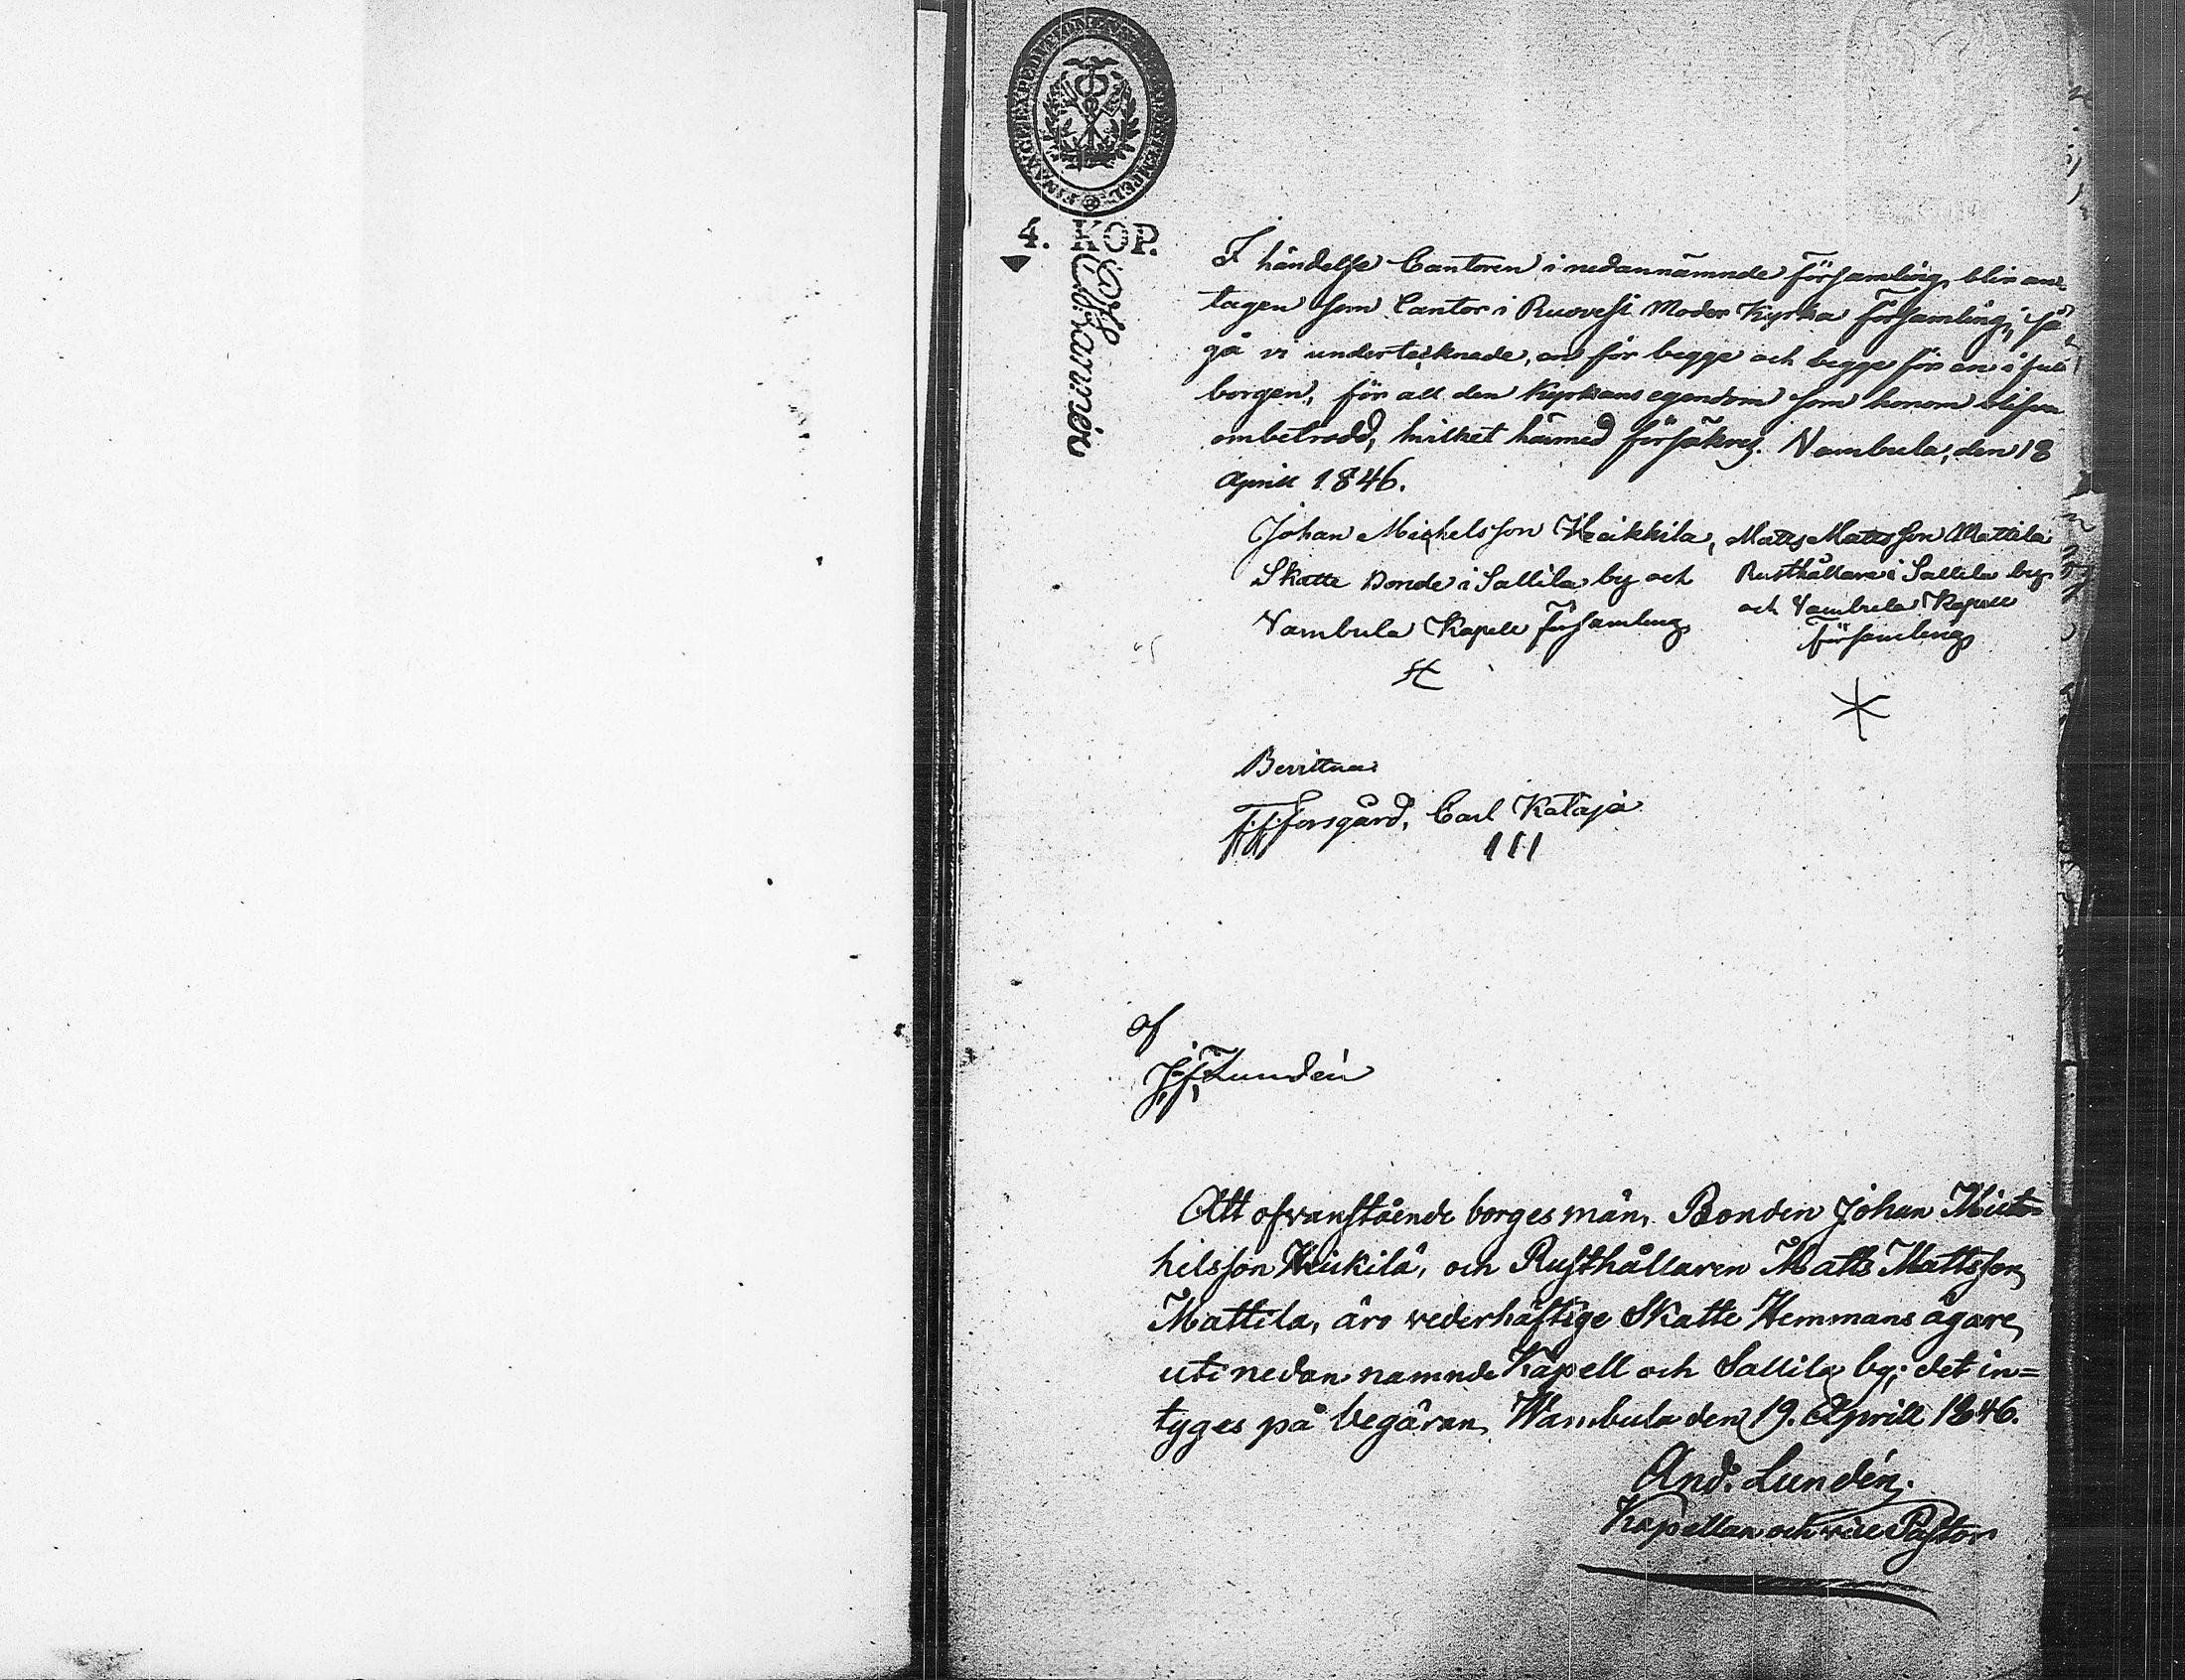 4. KOP.
I händelse Cantoren i nedannämnde församling, blir an-
tagen som Cantor i Ruovesi Moder Kyrka församling, så
gå vi undertecknade, en för begge och begge för en i full
borgen, för all den Kyrkans egendom som honom blifver
ombetrodd, hvilket härmed försäkras. Vambula, den 18
Aprill 1846.
Johan Michelsson Heikkila, Matts Mattsson Mattila
Skatte Bonde i Sallila by och Rusthållare i Sallila by
Vambula Kapell församling och Vambula Kapell
församling
Bevittna:
F. F. Forsgård, Carl Kataja
III
af
J. F. Lundén
Att ofvanstående borgesmän, Bonden Johan Mic-
helsson Heikilä, och Rusthållaren Matts Mattsson
Mattila, äro vederhäftige Skatte Hemmans ägare,
uti nedan namnde Kapell och Sallila by; det in=
tyges på begäran, Wambula den 19. Aprill 1846.
And. Lundén.
Kapellan och vice Pastor